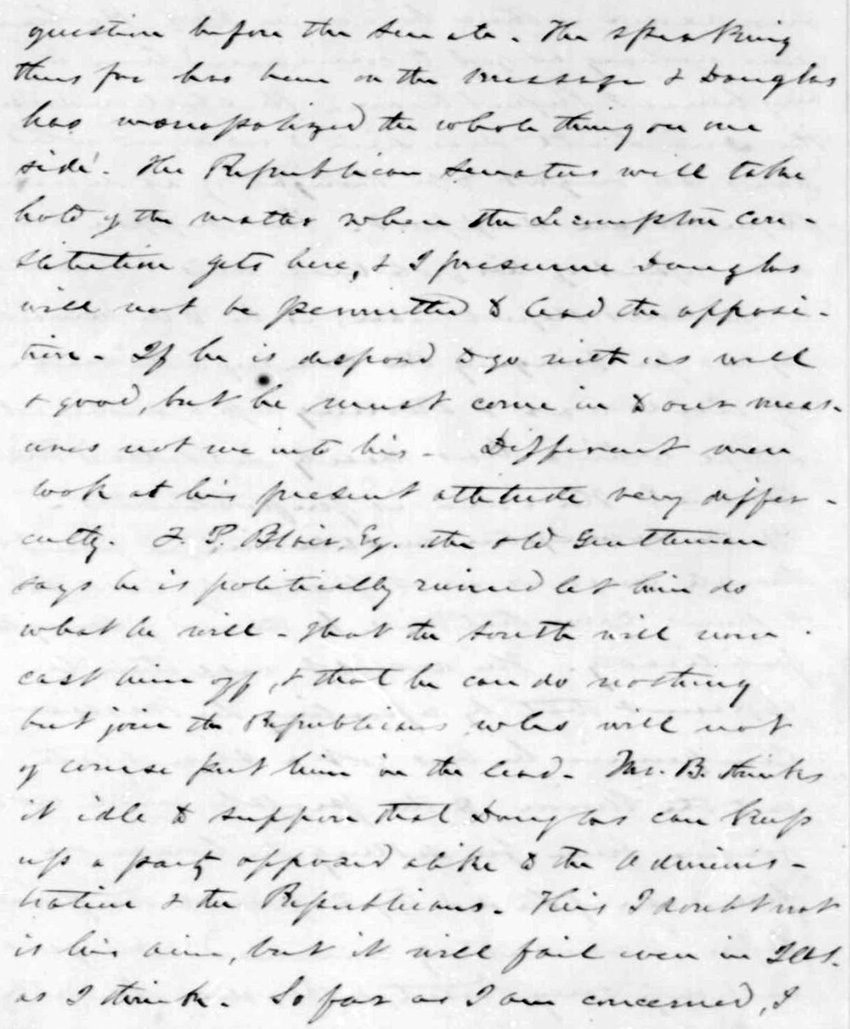 question before the Senate. The speaking
thus far has been on the message & Douglas
has monopolized the whole thing on one
side. The Republican Senators will take
hold of the matter when the Lecompton Con-
stitution gets here, & I presume Douglas
will not be permitted to lead the opposi-
tion. If he is disposed to go with us well
& good, but he must come in to our meas-
ures not we into his. Different men
look at his present attitude very differ-
ently. F. P. Blair, Esq. the old Gentleman
says he is politically ruined let him do
what he will. That the South will
cast him off, & that he can do nothing
but join the Republicans who will not
of course put him in the lead. Mr. B. thinks
it idle to suppose that Douglas can keep
up a party opposed alike to the Adminis-
tration & the Republicans. This I doubt not
is his aim, but it will fail even in Ills.
as I think. So far as I am concerned, I